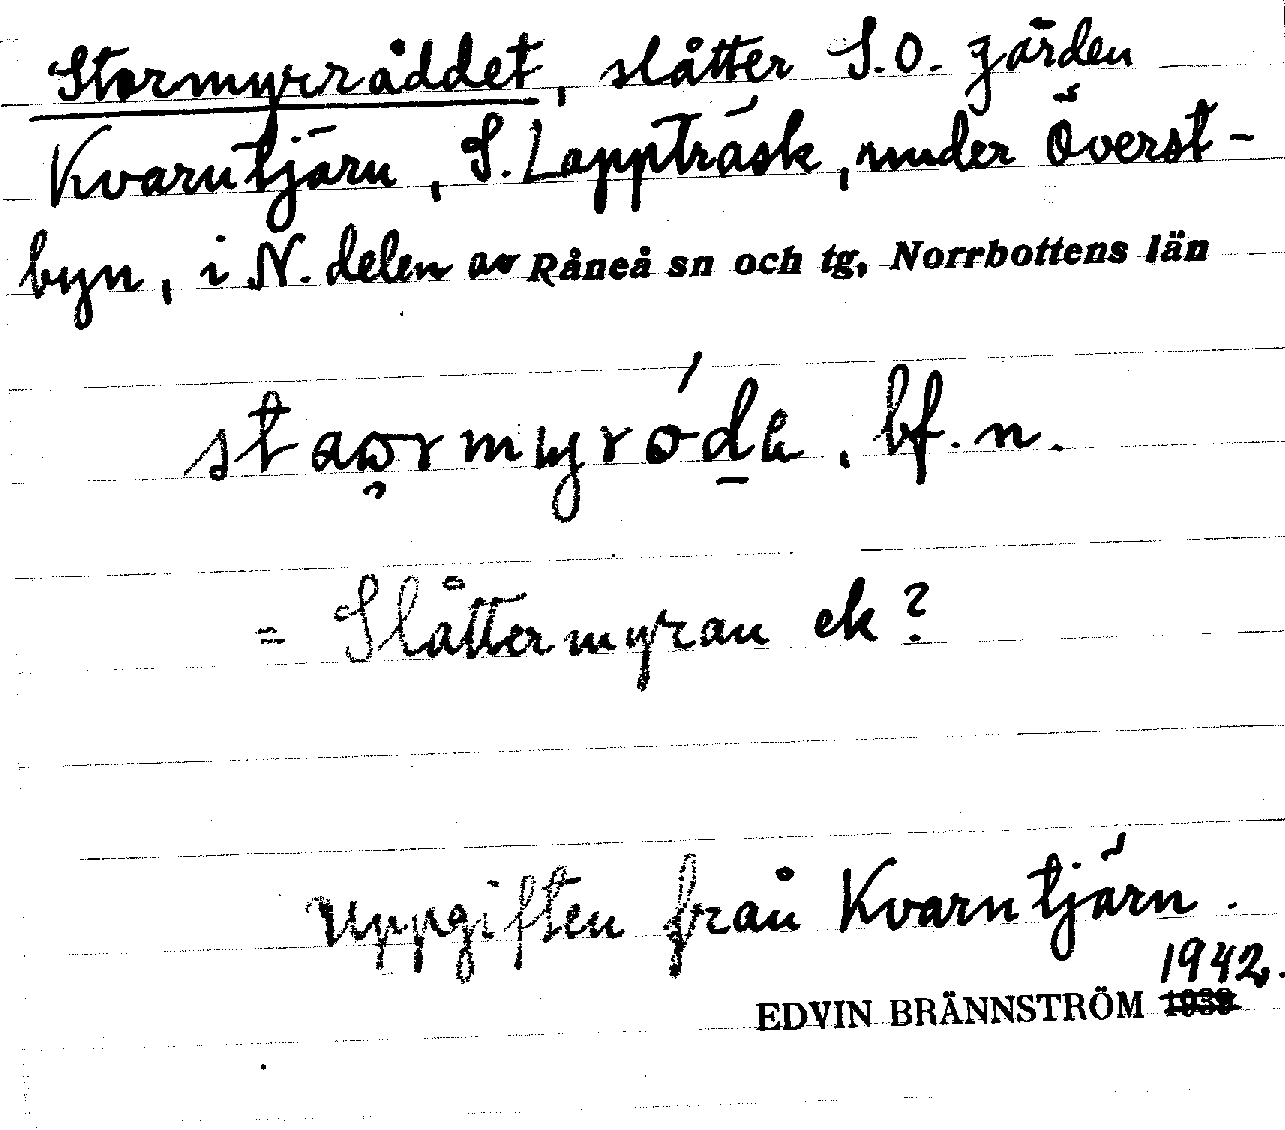 Stormyrråddet, slåtter S.O. gården
Kvarntjärn, S. Lappträsk, under Överst-
byn, i N. delen av Råneå sn och tg, Norrbottens län
bf. n.
= Slåttermyran ek?
Uppgiften från Kvarntjärn.
1942.
EDVIN BRÄNNSTRÖM 1939